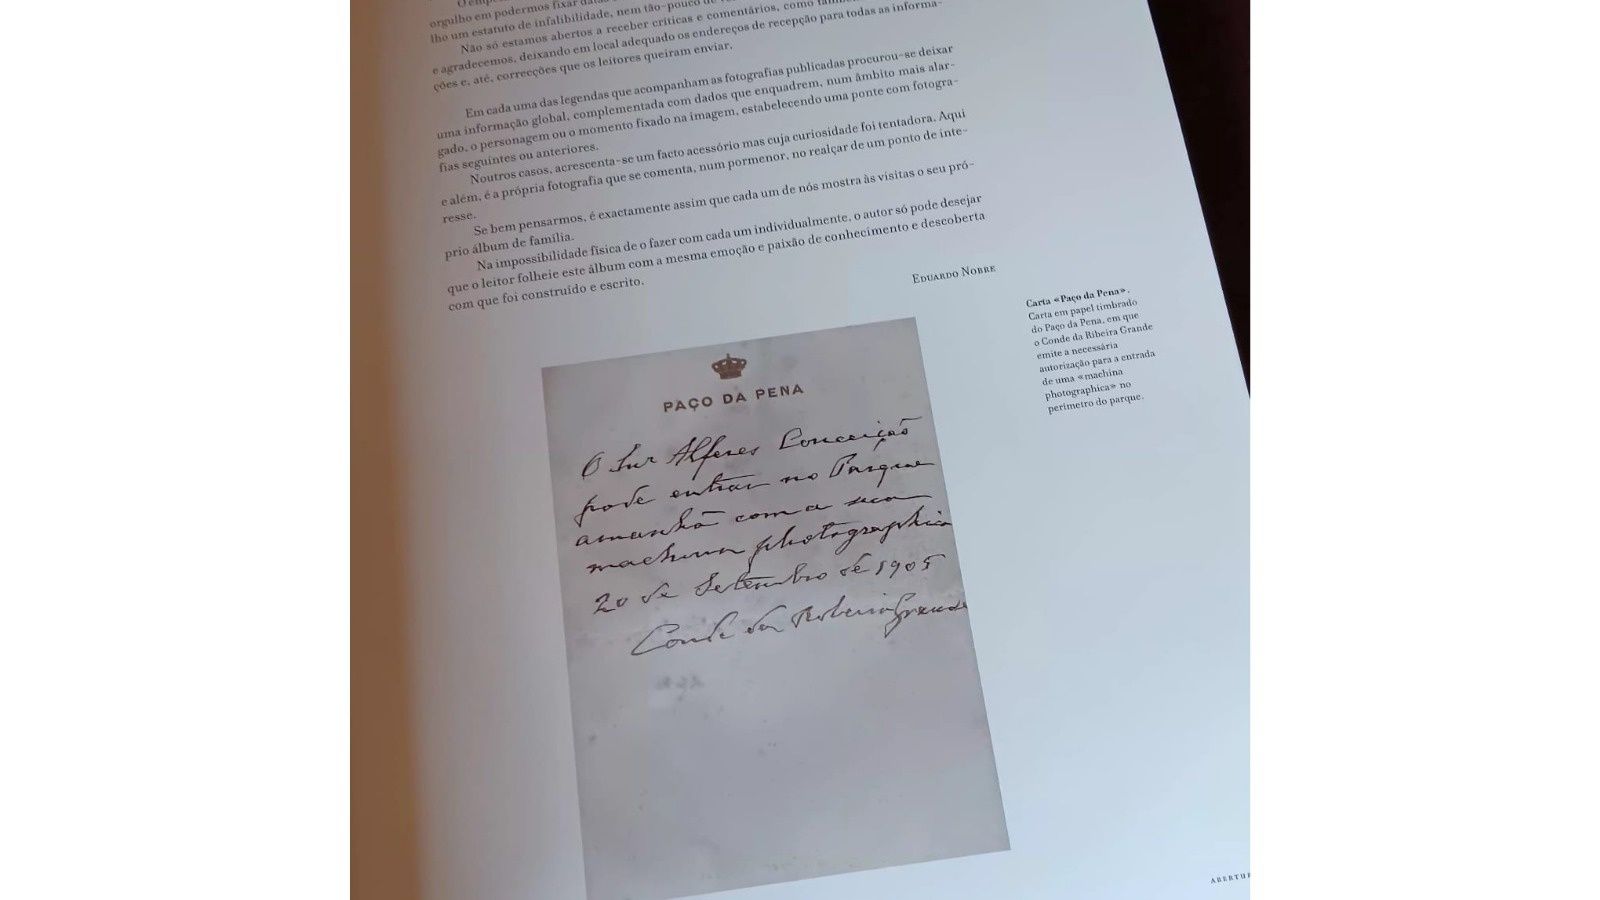 O empe
orgulho em podermos fixar datas
lho um estatuto de infalibilidade, nem tão-pouco de
Não só estamos abertos a receber críticas e comentários, como também
e agradecemos, deixando em local adequado os endereços de recepção para todas as informa-
ções e, até, correcções que os leitores queiram enviar.
Em cada uma das legendas que acompanham as fotografias publicadas procurou-se deixar
uma informação global, complementada com dados que enquadrem, num âmbito mais alar-
gado, o personagem ou o momento fixado na imagem, estabelecendo uma ponte com fotogra-
fias seguintes ou anteriores.
Noutros casos, acrescenta-se um facto acessório mas cuja curiosidade foi tentadora. Aqui
e além, é a própria fotografia que se comenta, num pormenor, no realçar de um ponto de inte-
resse.
Se bem pensarmos, é exactamente assim que cada um de nós mostra às visitas o seu pró-
prio álbum de família.
Na impossibilidade física de o fazer com cada um individualmente, o autor só pode desejar
que o leitor folheie este álbum com a mesma emoção e paixão de conhecimento e descoberta
com que foi construído e escrito.
EDUARDO NOBRE
Carta «Paço da Pena».
Carta em papel timbrado
do Paço da Pena, em que
o Conde da Ribeira Grande
emite a necessária
autorização para a entrada
de uma «machina
photographica» no
perímetro do parque.
PAÇO DA PENA
O Snr Alferes Conceição
pode entrar no Parque
amanhã com a sua
machina photographica
20 de Setembro de 1905
Conde da Ribeira Grande
ABERTU